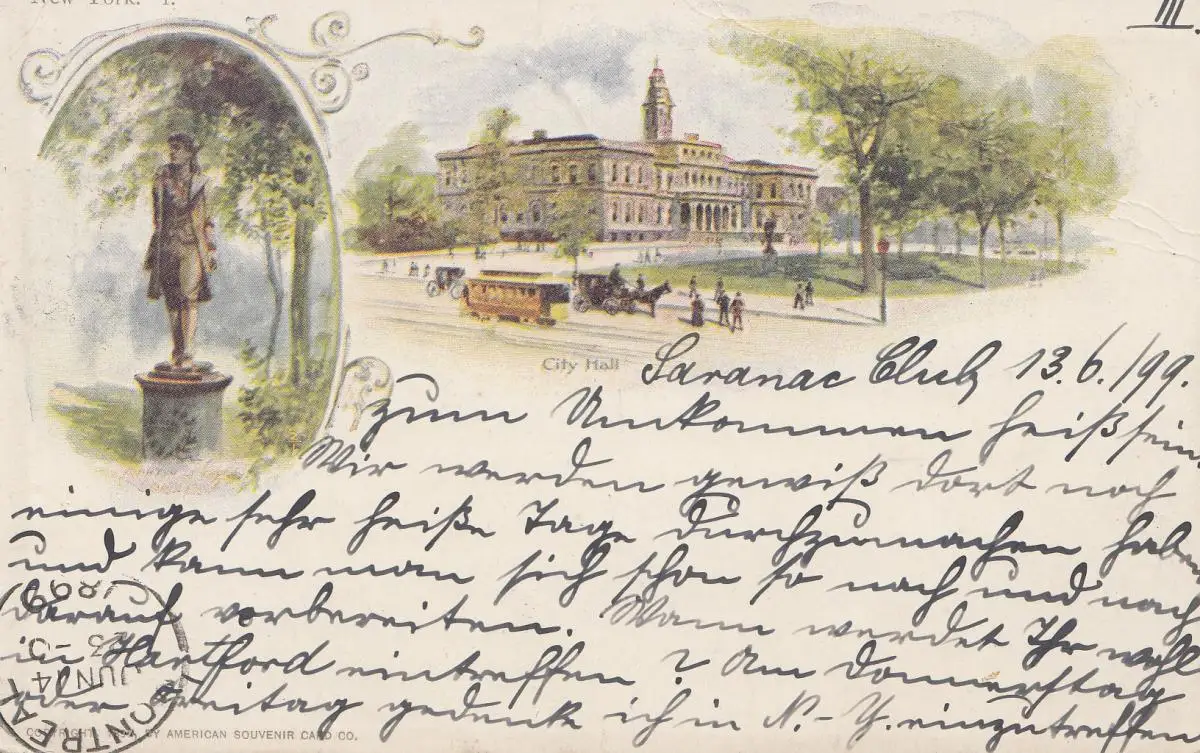 New York. 1.
III.
City Hall
Saranac Club 13.6./99.
zum Umkommen heiß sein.
Wir werden gewiß dort noch
einige sehr heiße Tage durchzumachen haben
und kann man sich schon so nach und nach
darauf vorbereiten. Wann werdet Ihr wohl
in Hartford eintreffen? Am Donnerstag
oder Freitag gedenke ich in N.-Y. einzutreffen
MONTREAL
JUN 14
99
BY AMERICAN SOUVENIR CARD CO.